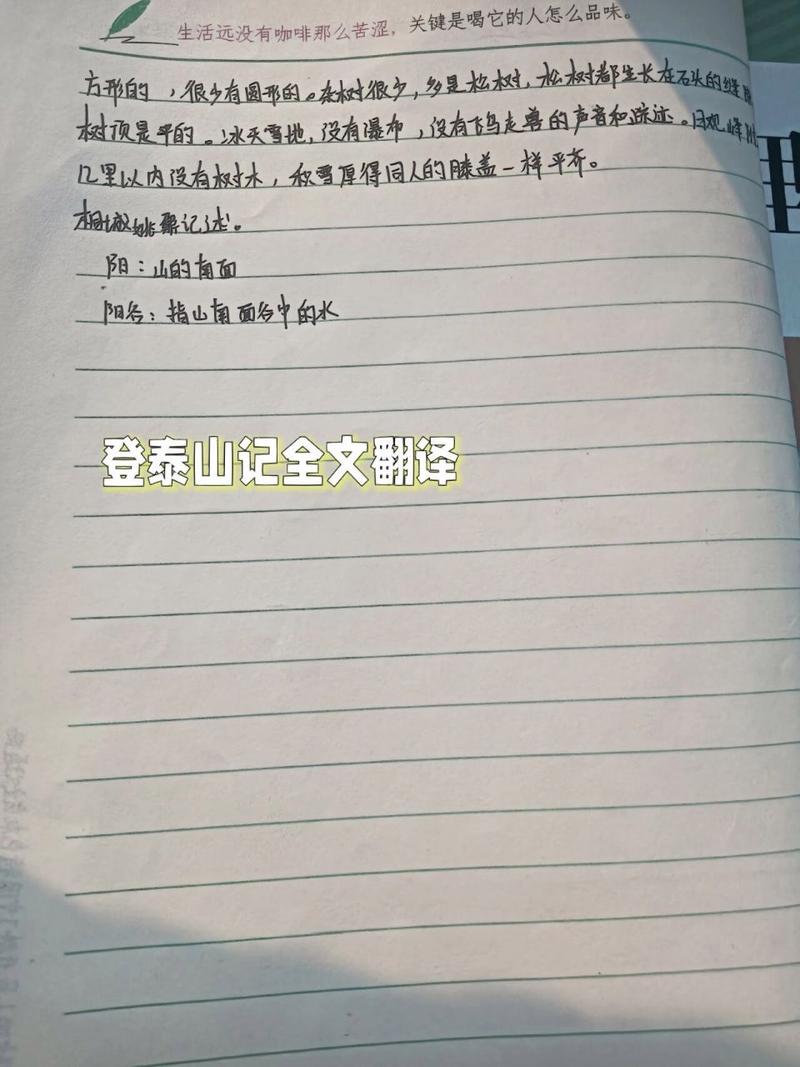 生活远没有咖啡那么苦涩，关键是喝它的人怎么品味。
方形的，很少有圆形的。杂树很少，多是松树，松树都生长在石头的缝隙
树顶是平的。冰天雪地，没有瀑布，没有飞鸟走兽的声音和踪迹。日观峰附
几里以内没有树木，积雪厚得同人的膝盖一样平齐。
桐城姚鼐记述。
阳：山的南面
阳谷：指山南面谷中的水
登泰山记全文翻译